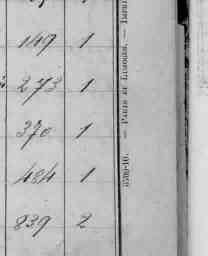 149 1
273 1
370 1
484 1
839 2
3509-10. — PARIS ET LIMOGES. — IMPRI